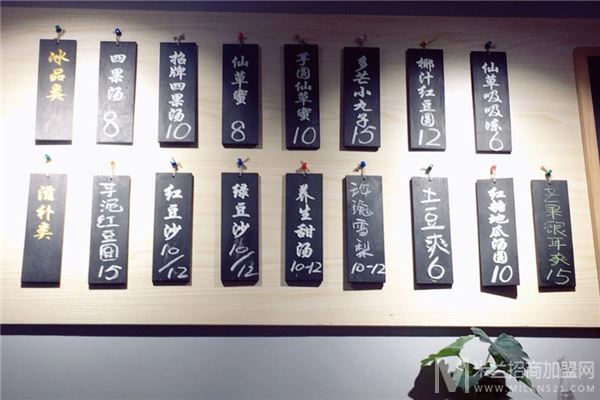 冰品类
四果汤 8
招牌四果汤 10
仙草蜜 8
芋圆仙草蜜 10
多芒小丸子 15
椰汁红豆圆 12
仙草吸吸冻 6
类
芋泥红豆圆 15
红豆沙 10/12
绿豆沙 10/12
养生甜汤 10-12
雪梨 10-12
土豆爽 6
红糖地瓜汤圆 10
芒果银耳爽 15
米兰招商加盟网
WWW.MILAN521.COM